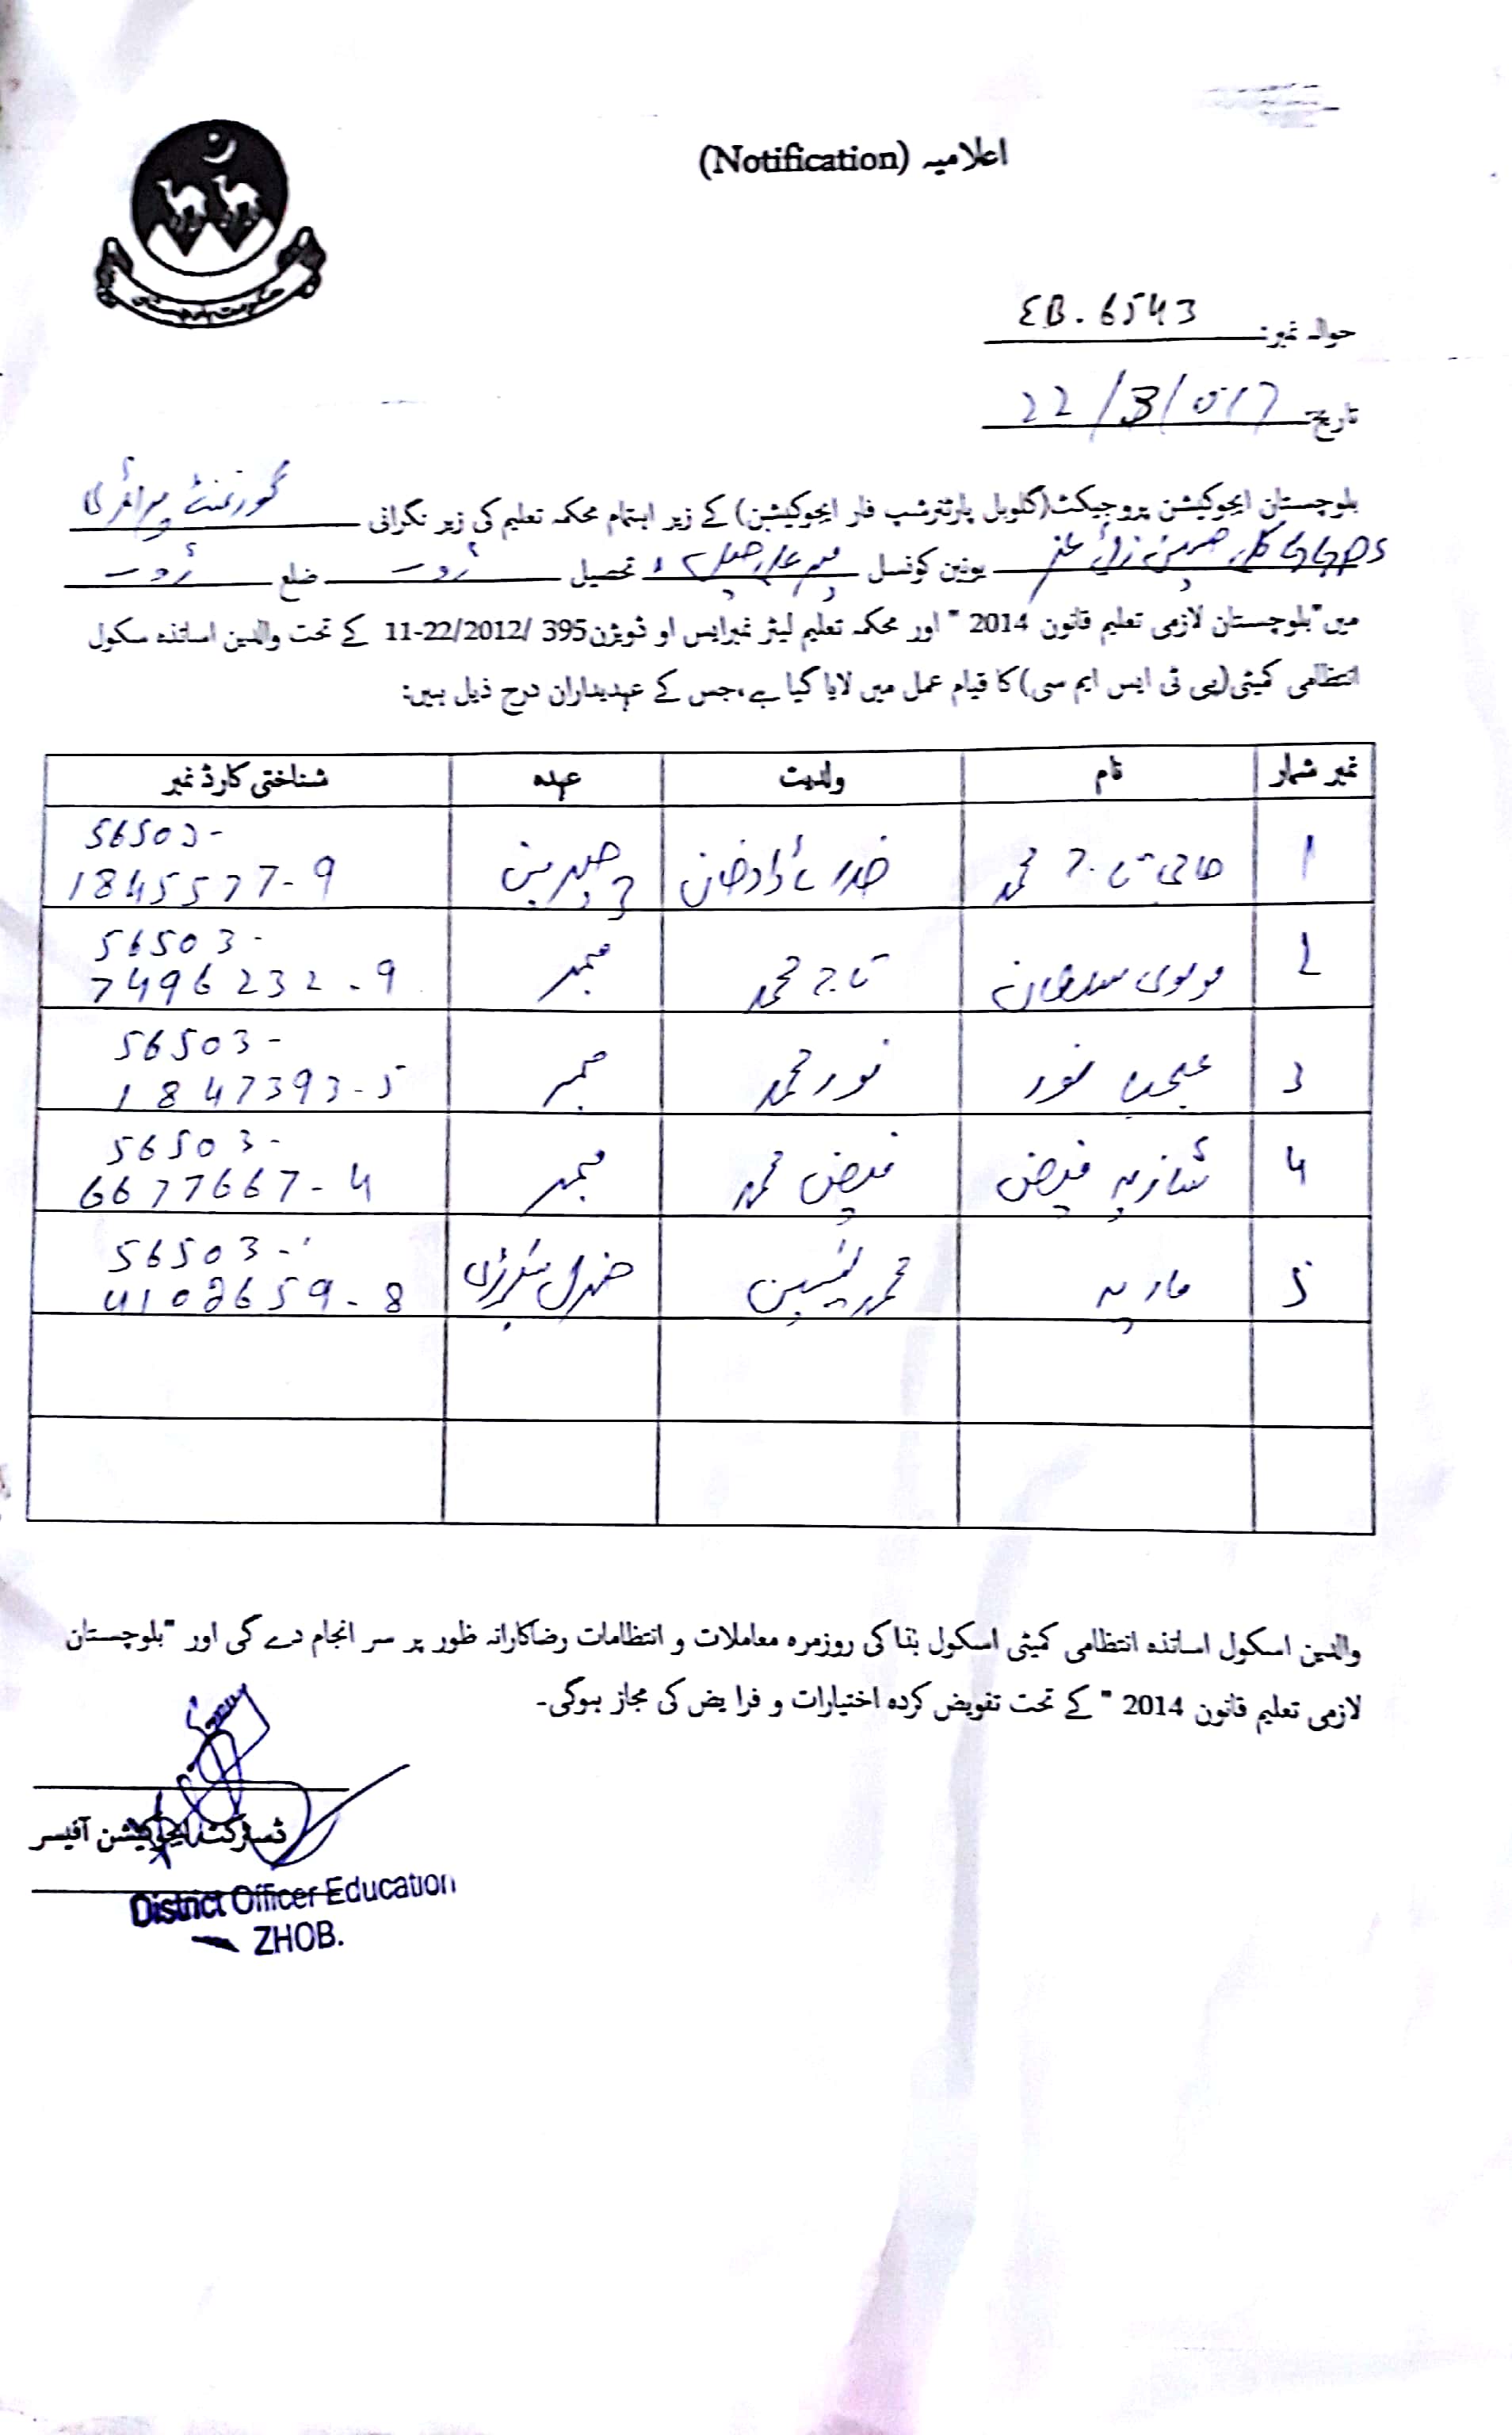 اعلامیہ (Notification)
حوالہ نمبر: EB. 6543
تاریخ: 22/3/017
بلوچستان ایجوکیشن پروجیکٹ(گلوبل پارٹنرشپ فار ایجوکیشن) کے زیر اہتمام محکمہ تعلیم کی زیر نگرانی گورنمنٹ پرائمری
یونین کونسل تحصیل ژوب ضلع ژوب
میں"بلوچستان لازمی تعلیم قانون 2014 " اور محکمہ تعلیم لیٹر نمبرایس او ڈویژن395 /11-22/2012 کے تحت والدین اساتذہ سکول
انتظامی کمیٹی(پی ٹی ایس ایم سی) کا قیام عمل میں لایا گیا ہے،جس کے عہدیداران درج ذیل ہیں:
نمبر شمار نام ولدیت عہدہ شناختی کارڈ نمبر
1 حاجی تاج محمد خدائیدادخان چیرمین 56503-
1845577-9
2 مولوی سلطان تاج محمد ممبر 56503-
7496232-9
3 نور نور محمد ممبر 56503-
1847393-5
4 شازیہ فیض فیض محمد ممبر 56503-
6677667-4
5 ماریہ محمد یٰسین جنرل سیکرٹری 56503-
4102659-8
والدین اسکول اساتذہ انتظامی کمیٹی اسکول ہٰذا کی روزمرہ معاملات و انتظامات رضاکارانہ طور پر سر انجام دے گی اور "بلوچستان
لازمی تعلیم قانون 2014 " کے تحت تفویض کردہ اختیارات و فرایض کی مجاز ہوگی۔
ڈسٹرکٹ ایجوکیشن آفیسر
District Officer Education
ZHOB.